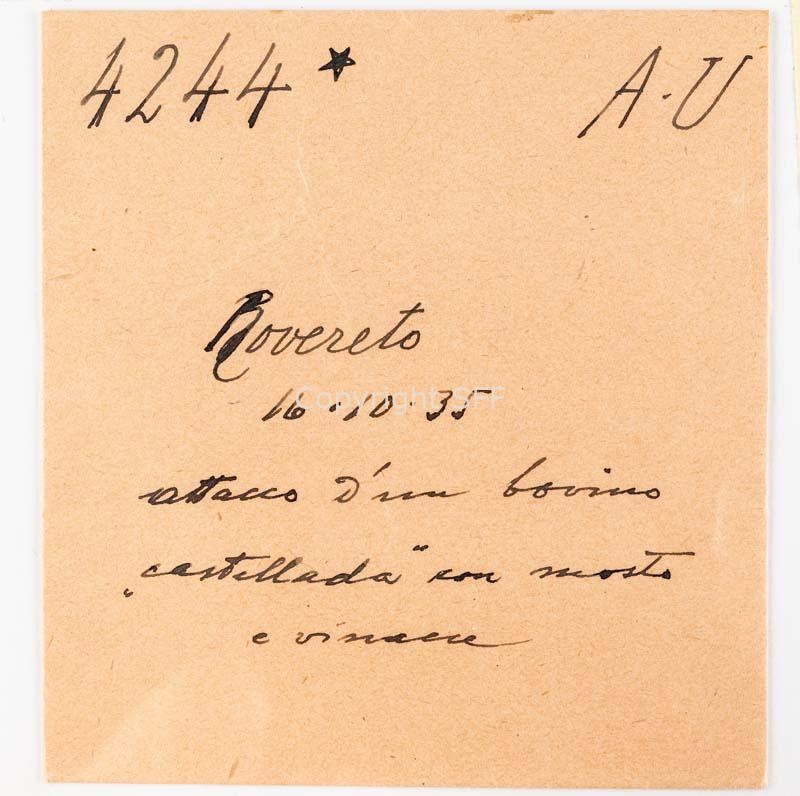 4244* A.U
Rovereto
Copyright SFF
16.10.35
attacco d'un bovino
„castellada" con mosto
e vinacce